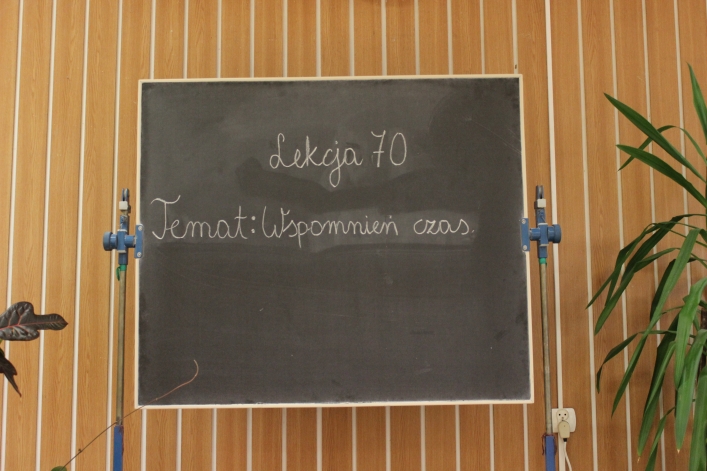 Lekcja 70
Temat: Wspomnień czas.